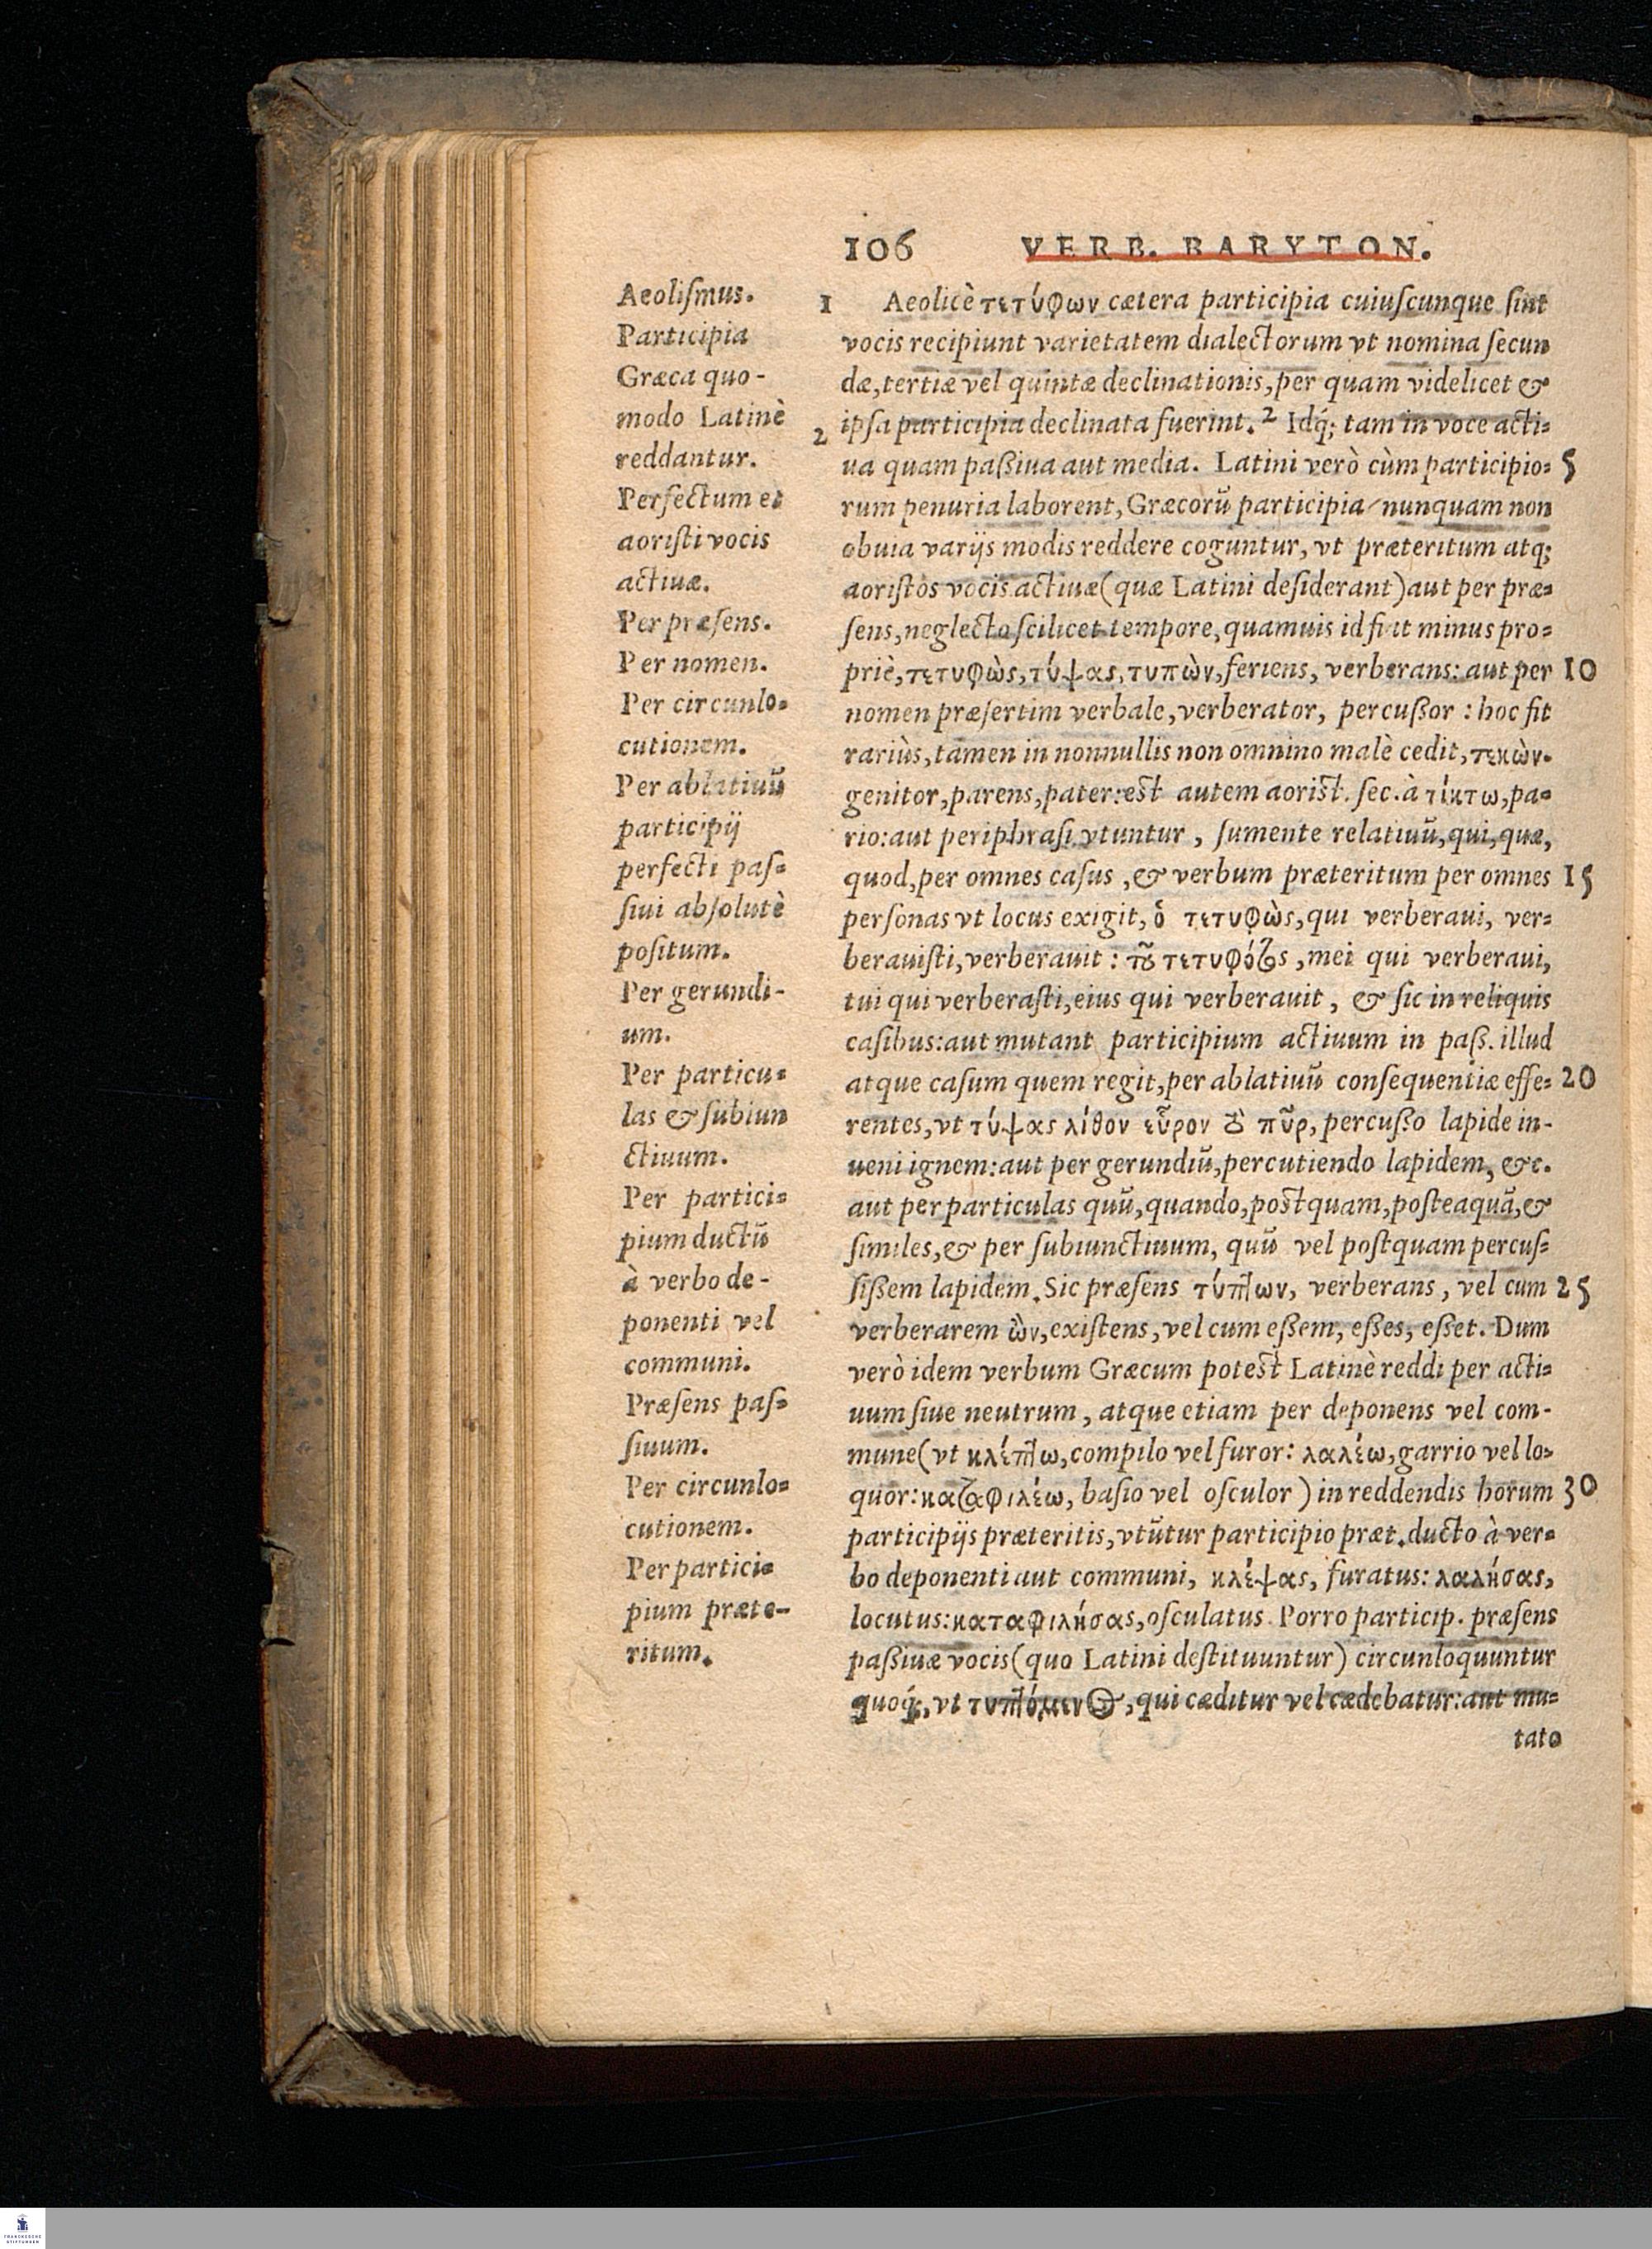 106 VERB. BARYTON.
Aeoliſmus.
Participia
Græca quo-
modo Latinè
reddantur.
Perfectum et
aoriſti vocis
actiuæ.
Per præſens.
Per nomen.
Per circunlo-
cutionem.
Per ablatiuū
participij
perfecti paſ-
ſiui abſolutè
poſitum.
Per gerundi-
um.
Per particu-
las & ſubiun
ctiuum.
Per partici-
pium ductū
à verbo de-
ponenti vel
communi.
Præſens paſ-
ſiuum.
Per circunlo-
cutionem.
Per partici-
pium præte-
ritum.
1 Aeolicè τετύφων cætera participia cuiuſcunque ſint
vocis recipiunt varietatem dialectorum vt nomina ſecun
dæ, tertiæ vel quintæ declinationis, per quam videlicet &
2 ipſa participia declinata fuerint. 2 Idq́; tam in voce acti-
ua quam paßiua aut media. Latini verò cùm participio- 5
rum penuria laborent, Græcorū participia nunquam non
obuia varijs modis reddere coguntur, vt præteritum atq;
aoriſtos vocis actiuæ (quæ Latini deſiderant) aut per præ-
ſens, neglecto ſcilicet tempore, quamuis id fiat minus pro-
priè, τετυφὼς, τύψας, τυπὼν, feriens, verberans: aut per 10
nomen præſertim verbale, verberator, percußor : hoc fit
rariùs, tamen in nonnullis non omnino malè cedit, τεκὼν.
genitor, parens, pater: est autem aorist. ſec. à τίκτω, pa-
rio: aut periphraſi vtuntur, ſumente relatiuū, qui, quæ,
quod, per omnes caſus, & verbum præteritum per omnes 15
perſonas vt locus exigit, ὁ τετυφὼς, qui verberaui, ver-
berauiſti, verberauit : τοῦ τετυφότος, mei qui verberaui,
tui qui verberaſti, eius qui verberauit, & ſic in reliquis
caſibus: aut mutant participium actiuum in paſſ. illud
atque caſum quem regit, per ablatiuū conſequentiæ effe- 20
rentes, vt τύψας λίθον εὗρον τὸ πῦρ, percußo lapide in-
ueni ignem: aut per gerundiū, percutiendo lapidem, &c.
aut per particulas quū, quando, postquam, poſteaquā, &
ſimiles, & per ſubiunctiuum, quū vel poſtquam percuſ-
ſißem lapidem. Sic præſens τύπτων, verberans, vel cum 25
verberarem ὢν, exiſtens, vel cum eßem, eßes, eßet. Dum
verò idem verbum Græcum potest Latinè reddi per acti-
uum ſiue neutrum, atque etiam per deponens vel com-
mune (vt κλέπτω, compilo vel furor: λαλέω, garrio vel lo-
quor: καταφιλέω, baſio vel oſculor ) in reddendis horum 30
participijs præteritis, vtūtur participio præt. ducto à ver-
bo deponenti aut communi, κλέψας, furatus: λαλήσας,
locutus: καταφιλήσας, oſculatus. Porro particip. præſens
paßiuæ vocis (quo Latini deſtituuntur) circunloquuntur
quoq́;, vt τυπτόμενος, qui cæditur vel cædebatur: aut mu-
tato
FRANCKESCHE
STIFTUNGEN